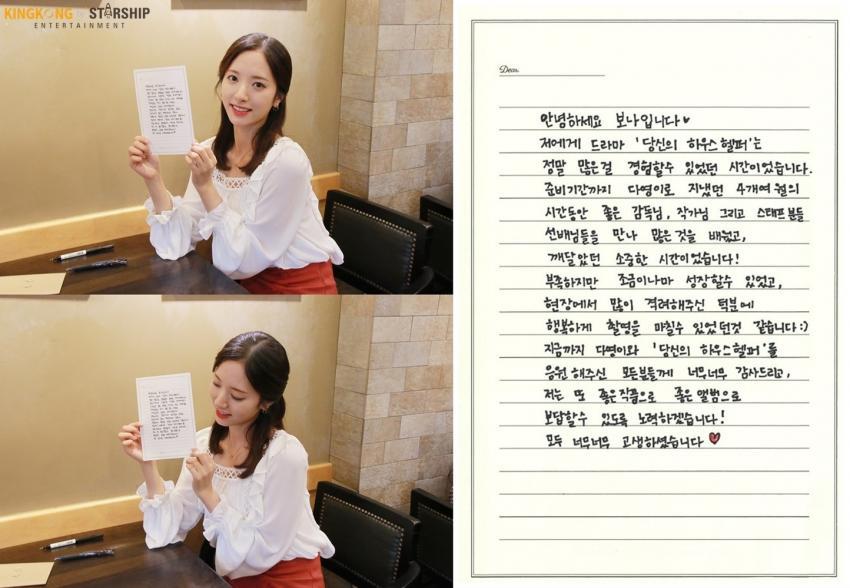 KINGKONG by STARSHIP
ENTERTAINMENT
Dear.
안녕하세요 보나입니다♥
저에게 드라마 '당신의 하우스헬퍼'는
정말 많은걸 경험할수 있었던 시간이었습니다.
준비기간까지 다영이로 지냈던 4개여월의
시간동안 좋은 감독님, 작가님 그리고 스태프분들
선배님들을 만나 많은 것을 배웠고,
깨달았던 소중한 시간이었습니다!
부족하지만 조금이나마 성장할수 있었고,
현장에서 많이 격려해주신 덕분에
행복하게 촬영을 마칠수 있었던것 같습니다:)
지금까지 다영이와 '당신의 하우스헬퍼'를
응원해주신 모든분들께 너무너무 감사드리고,
저는 또 좋은작품으로 좋은앨범으로
보답할수 있도록 노력하겠습니다!
모두 너무너무 고생하셨습니다♥